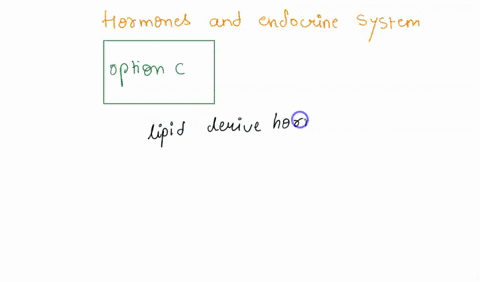 Hormones and endocrine system
option c
lipid derive hor